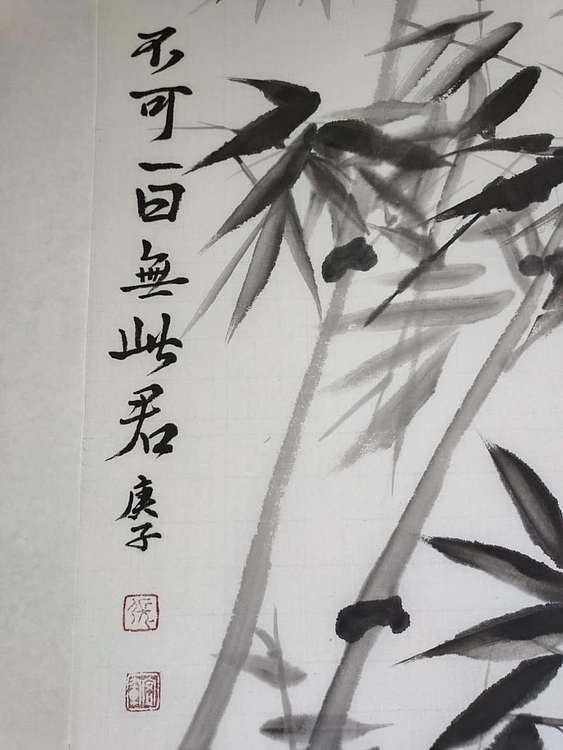 不可一日無此君
庚子